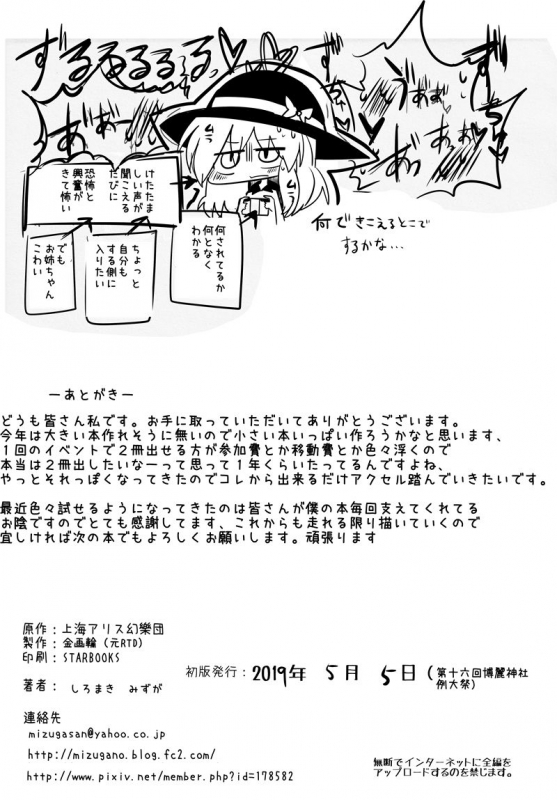 ずるるるるる、♡
ああー
ずっ
ああぁ
あっ
あぁ
何されてるか
何となく
わかる
けたたま
しい声が
聞こえる
たびに
恐怖と
興奮が
きて怖い
ちょっと
自分も
する側に
入りたい
でも
お姉ちゃん
こわい
何できこえるとこで
するかな…
ーあとがきー
どうも皆さん私です。お手に取っていただいてありがとうございます。
今年は大きい本作れそうに無いので小さい本いっぱい作ろうかなと思います、
１回のイベントで２冊出せる方が参加費とか移動費とか色々浮くので
本当は２冊出したいなーって思って１年くらいたってるんですよね、
やっとそれっぽくなってきたのでコレから出来るだけアクセル踏んでいきたいです。
最近色々試せるようになってきたのは皆さんが僕の本毎回支えてくれてる
お陰ですのでとても感謝してます、これからも走れる限り描いていくので
宜しければ次の本でもよろしくお願いします。頑張ります
原作：上海アリス幻樂団
製作：金画輪（元RTD）
印刷：STARBOOKS
初版発行：2019年 5月 5日（第十六回博麗神社
例大祭）
著者： しろまき みずが
連絡先
mizugasan@yahoo.co.jp
http://mizugano.blog.fc2.com/
http://www.pixiv.net/member.php?id=178582
無断でインターネットに全編を
アップロードするのを禁じます。